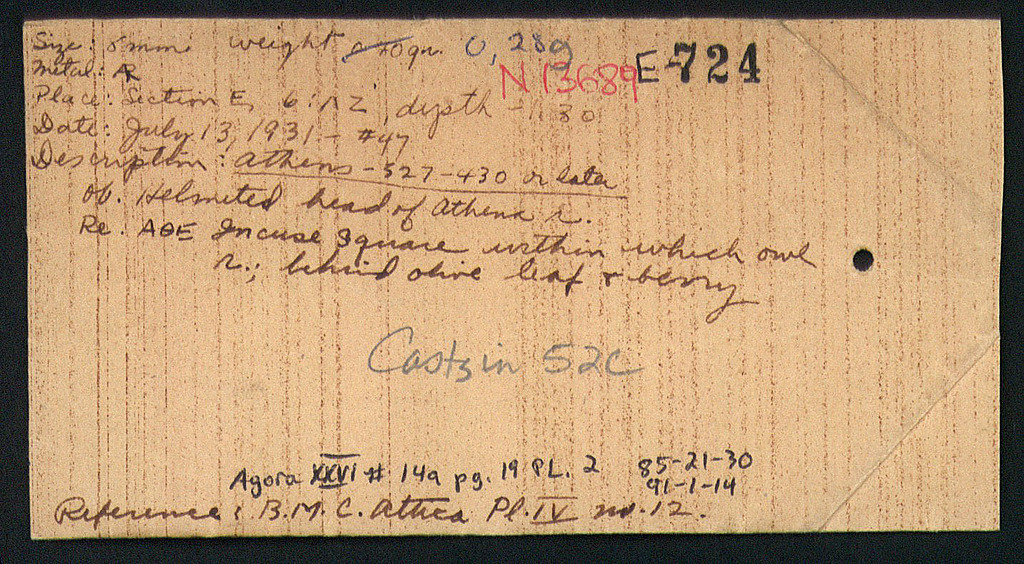 Size: 6 mm. weight 0,28g
N 13689 E-724
Metal: AR
Place: Section E, 6/ΙΖ depth -1.30
Date: July 13, 1931 - #47
Description: Athens - 527-430 or later
Ob. Helmeted head of Athena r.
Re. ΑΘΕ Incuse square within which owl
r.; behind olive leaf & berry
Casts in 52C
Agora XXVI # 14a pg. 19 PL. 2 85-21-30
91-1-14
Reference: B.M.C. Attica Pl. IV no. 12.